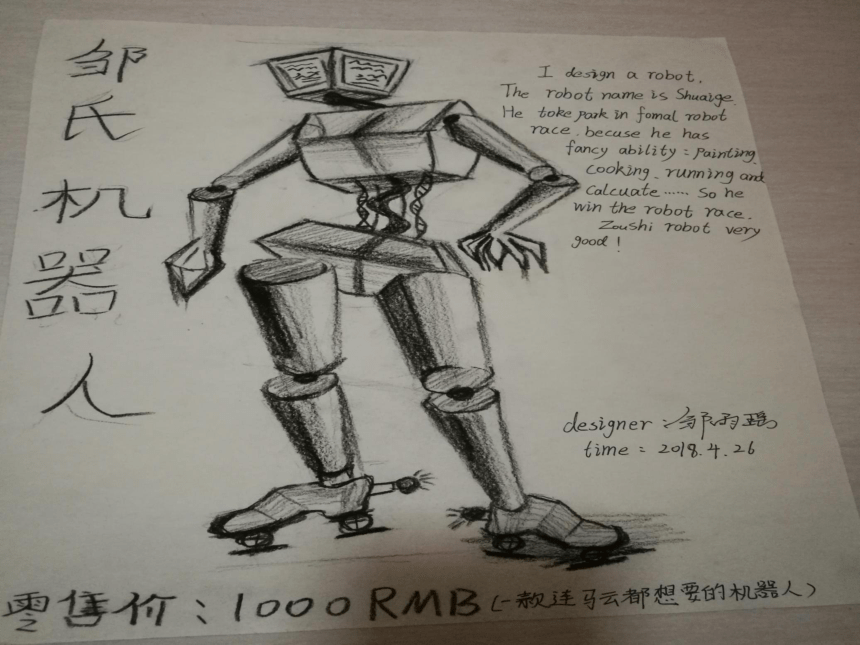 邹氏机器人
I design a robot.
The robot name is Shuaige.
He toke park in fomal robot
race. becuse he has
fancy ability : painting.
cooking. running and
calcuate …… So he
win the robot race.
Zoushi robot very
good !
designer : 邹雨瑶
time : 2018.4.26
零售价 : 1000 RMB (一款连马云都想要的机器人)